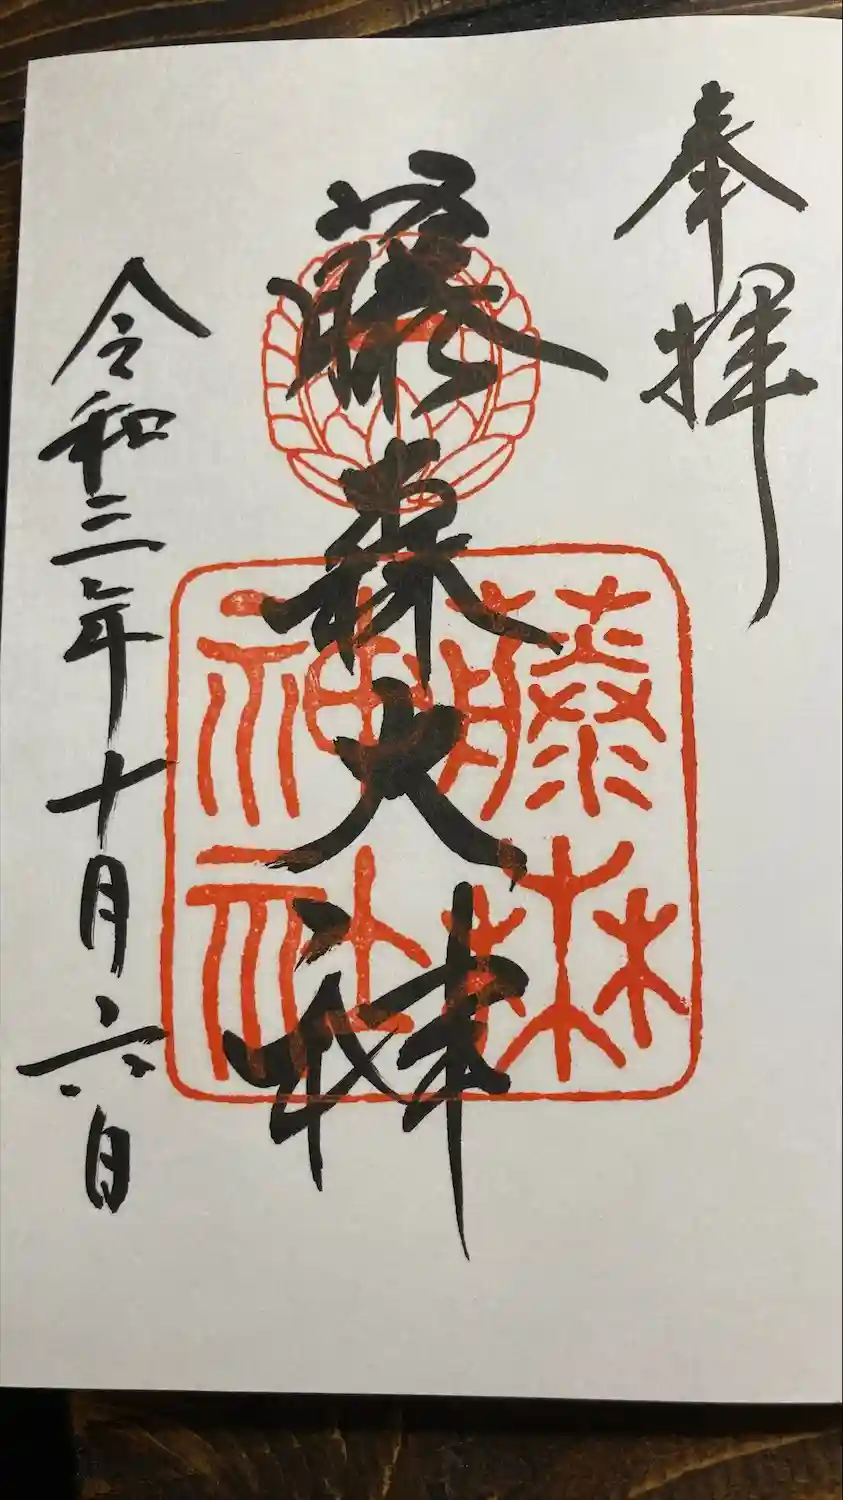 奉拝
藤森大神
藤森神社
令和三年十月六日